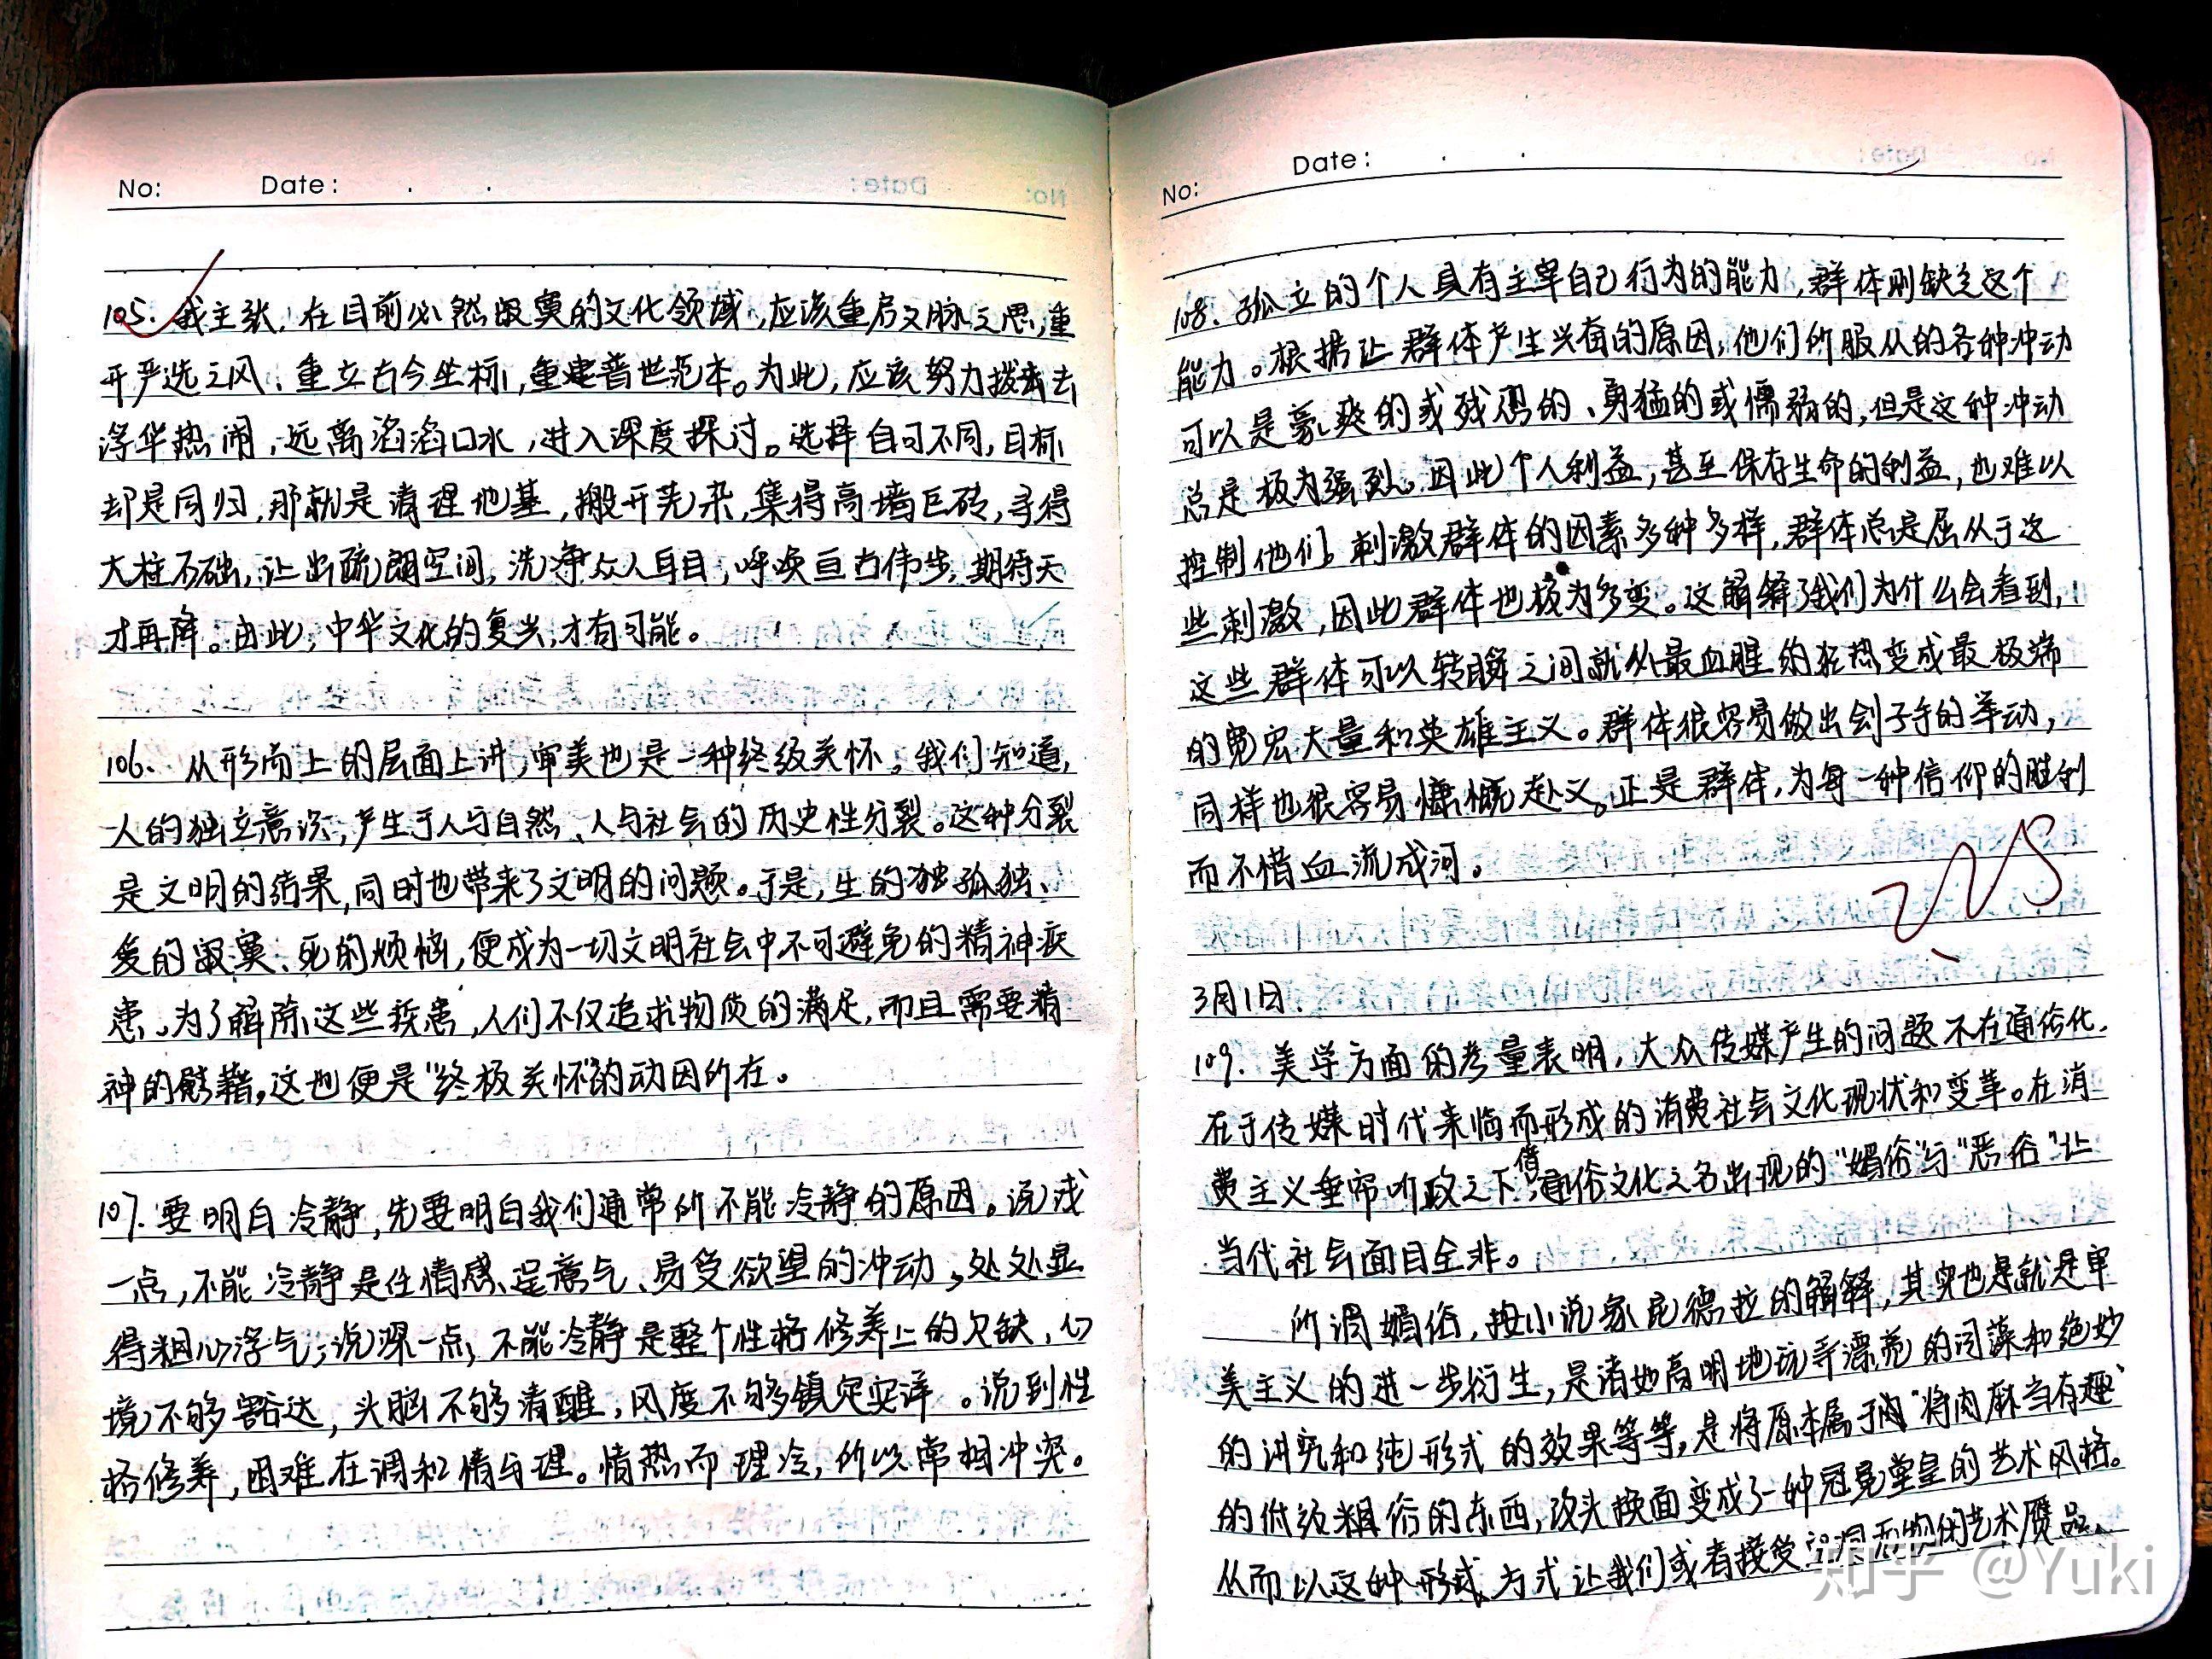 No: Date: . .
105. 我主张，在目前必然寂寞的文化领域，应该重启文脉之思，重
开严选之风、重立古今坐标，重建普世范本。为此，应该努力拨去
浮华热闹，远离滔滔口水，进入深度探讨。选择自可不同，目标
却是同归，那就是清理地基，搬开芜杂，集得高墙巨砖，寻得
大柱石础，让出疏朗空间，洗净众人耳目，呼唤亘古伟步，期待天
才再降。由此，中华文化的复兴，才有可能。
106. 从形而上的层面上讲，审美也是一种终极关怀。我们知道，
人的独立意识，产生于人与自然、人与社会的历史性分裂。这种分裂
是文明的结果，同时也带来了文明的问题。于是，生的独孤独、
爱的寂寞、死的烦恼，便成为一切文明社会中不可避免的精神疾
患。为了解除这些疾患，人们不仅追求物质的满足，而且需要精
神的慰藉。这也便是“终极关怀”的动因所在。
107. 要明白冷静，先要明白我们通常所不能冷静的原因。说浅
一点，不能冷静是任情感、逞意气、易受欲望的冲动，处处显
得粗心浮气；说深一点，不能冷静是整个性格修养上的欠缺，心
境不够豁达，头脑不够清醒，风度不够镇定安详。说到性
格修养，困难在调和情与理。情热而理冷，所以常相冲突。
No: Date: . .
108. 孤立的个人具有主宰自己行为的能力，群体则缺乏这个
能力。根据让群体产生兴奋的原因，他们所服从的各种冲动
可以是豪爽的或残忍的、勇猛的或懦弱的，但是这种冲动
总是极为强烈。因此个人利益，甚至保存生命的利益，也难以
控制他们。刺激群体的因素多种多样，群体总是屈从于这
些刺激，因此群体也极为多变。这解释了我们为什么会看到，
这些群体可以转瞬之间就从最血腥的狂热变成最极端
的宽宏大量和英雄主义。群体很容易做出刽子手的举动，
同样也很容易慷慨赴义。正是群体，为每一种信仰的胜利
而不惜血流成河。
3月1日.
109. 美学方面的考量表明，大众传媒产生的问题不在通俗化，
在于传媒时代来临而形成的消费社会文化现状和变革。在消
费主义垂帘听政之下，借通俗文化之名出现的“媚俗”与“恶俗”让
当代社会面目全非。
所谓媚俗，按小说家昆德拉的解释，其实也是就是审
美主义的进一步衍生，是诸如高明地玩弄漂亮的词藻和绝妙
的讲究和纯形式的效果等等，是将原本属于肉“将肉麻当有趣”
的低级粗俗的东西，改头换面变成了一种冠冕堂皇的艺术风格。
从而以这种形式、方式让我们或者接受空洞无物的艺术赝品、
知乎 @Yuki